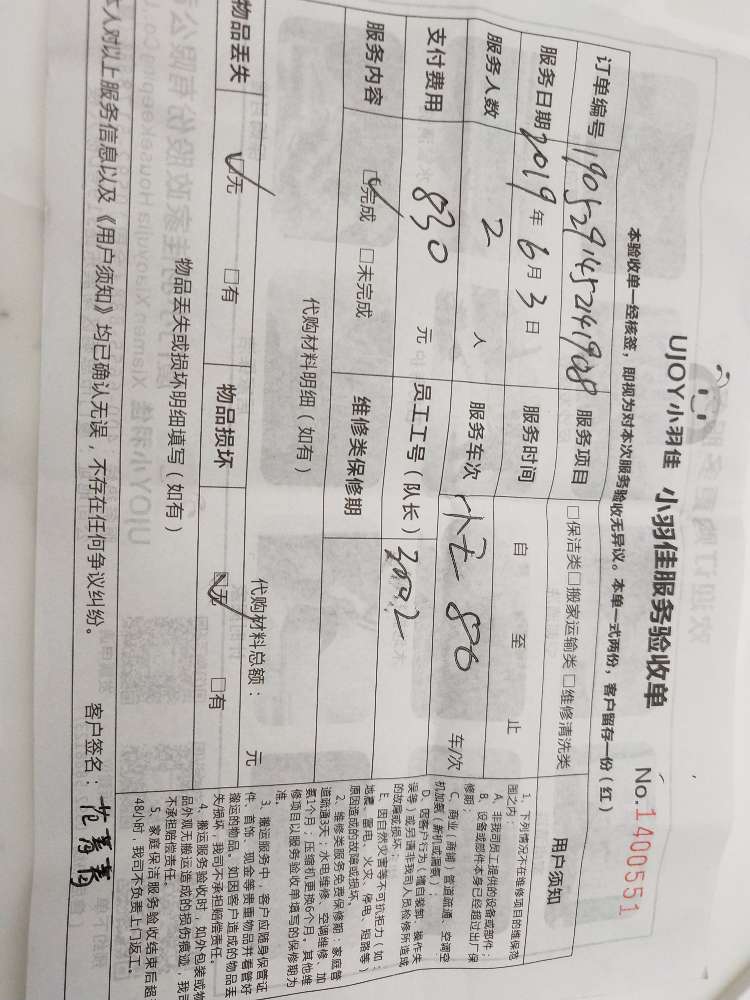 UJOY小羽佳 小羽佳服务验收单 No.1400551
本验收单一经核签，即视为对本次服务验收无异议。本单一式两份，客户留存一份（红）
订单编号 190529145241908 服务项目 □保洁类□搬家运输类 □维修清洗类
服务日期 2019年6月3日 服务时间 自 至 止
服务人数 2 人 服务车次 86 车/次
支付费用 830 元 员工工号（队长）
服务内容 ☑完成 □未完成 维修类保修期
代购材料明细（如有） 代购材料总额： 元
物品丢失 ☑无 □有 物品损坏 ☑无 □有
物品丢失或损坏明细填写（如有）
本人对以上服务信息以及《用户须知》均已确认无误，不存在任何争议纠纷。 客户签名：
用户须知
1、下列情况不在维修项目的维保范
围之内：
A、非我司员工提供的设备或部件；
B、设备或部件本身已经超过出厂保
修期；
C、商业/商铺、管道疏通、空调空
机加氨（新机或漏氨）；
D、因客户行为（擅自装卸、操作失
误等）或另请非我司人员检修所造成
的故障或损坏；
E、因自然灾害等不可抗拒力（如：
地震、雷电、火灾、停电、短路等）
原因造成的故障或损坏。
2、维修类服务免费保修期：家庭管
道疏通3天；水电维修、空调维修、加
氨1个月；压缩机更换6个月。其他维
修项目以服务验收单填写的保修期为
准。
3、搬运服务中，客户应随身保管证
件、首饰、现金等贵重物品并看管好
搬运的物品。如因客户造成的物品丢
失/损坏，我司不承担赔偿责任。
4、搬运服务验收时，如外包装或物
品外观无搬运造成的损伤痕迹，我司
不承担赔偿责任。
5、家庭保洁服务验收结束后超
48小时，我司不负责上门返工。